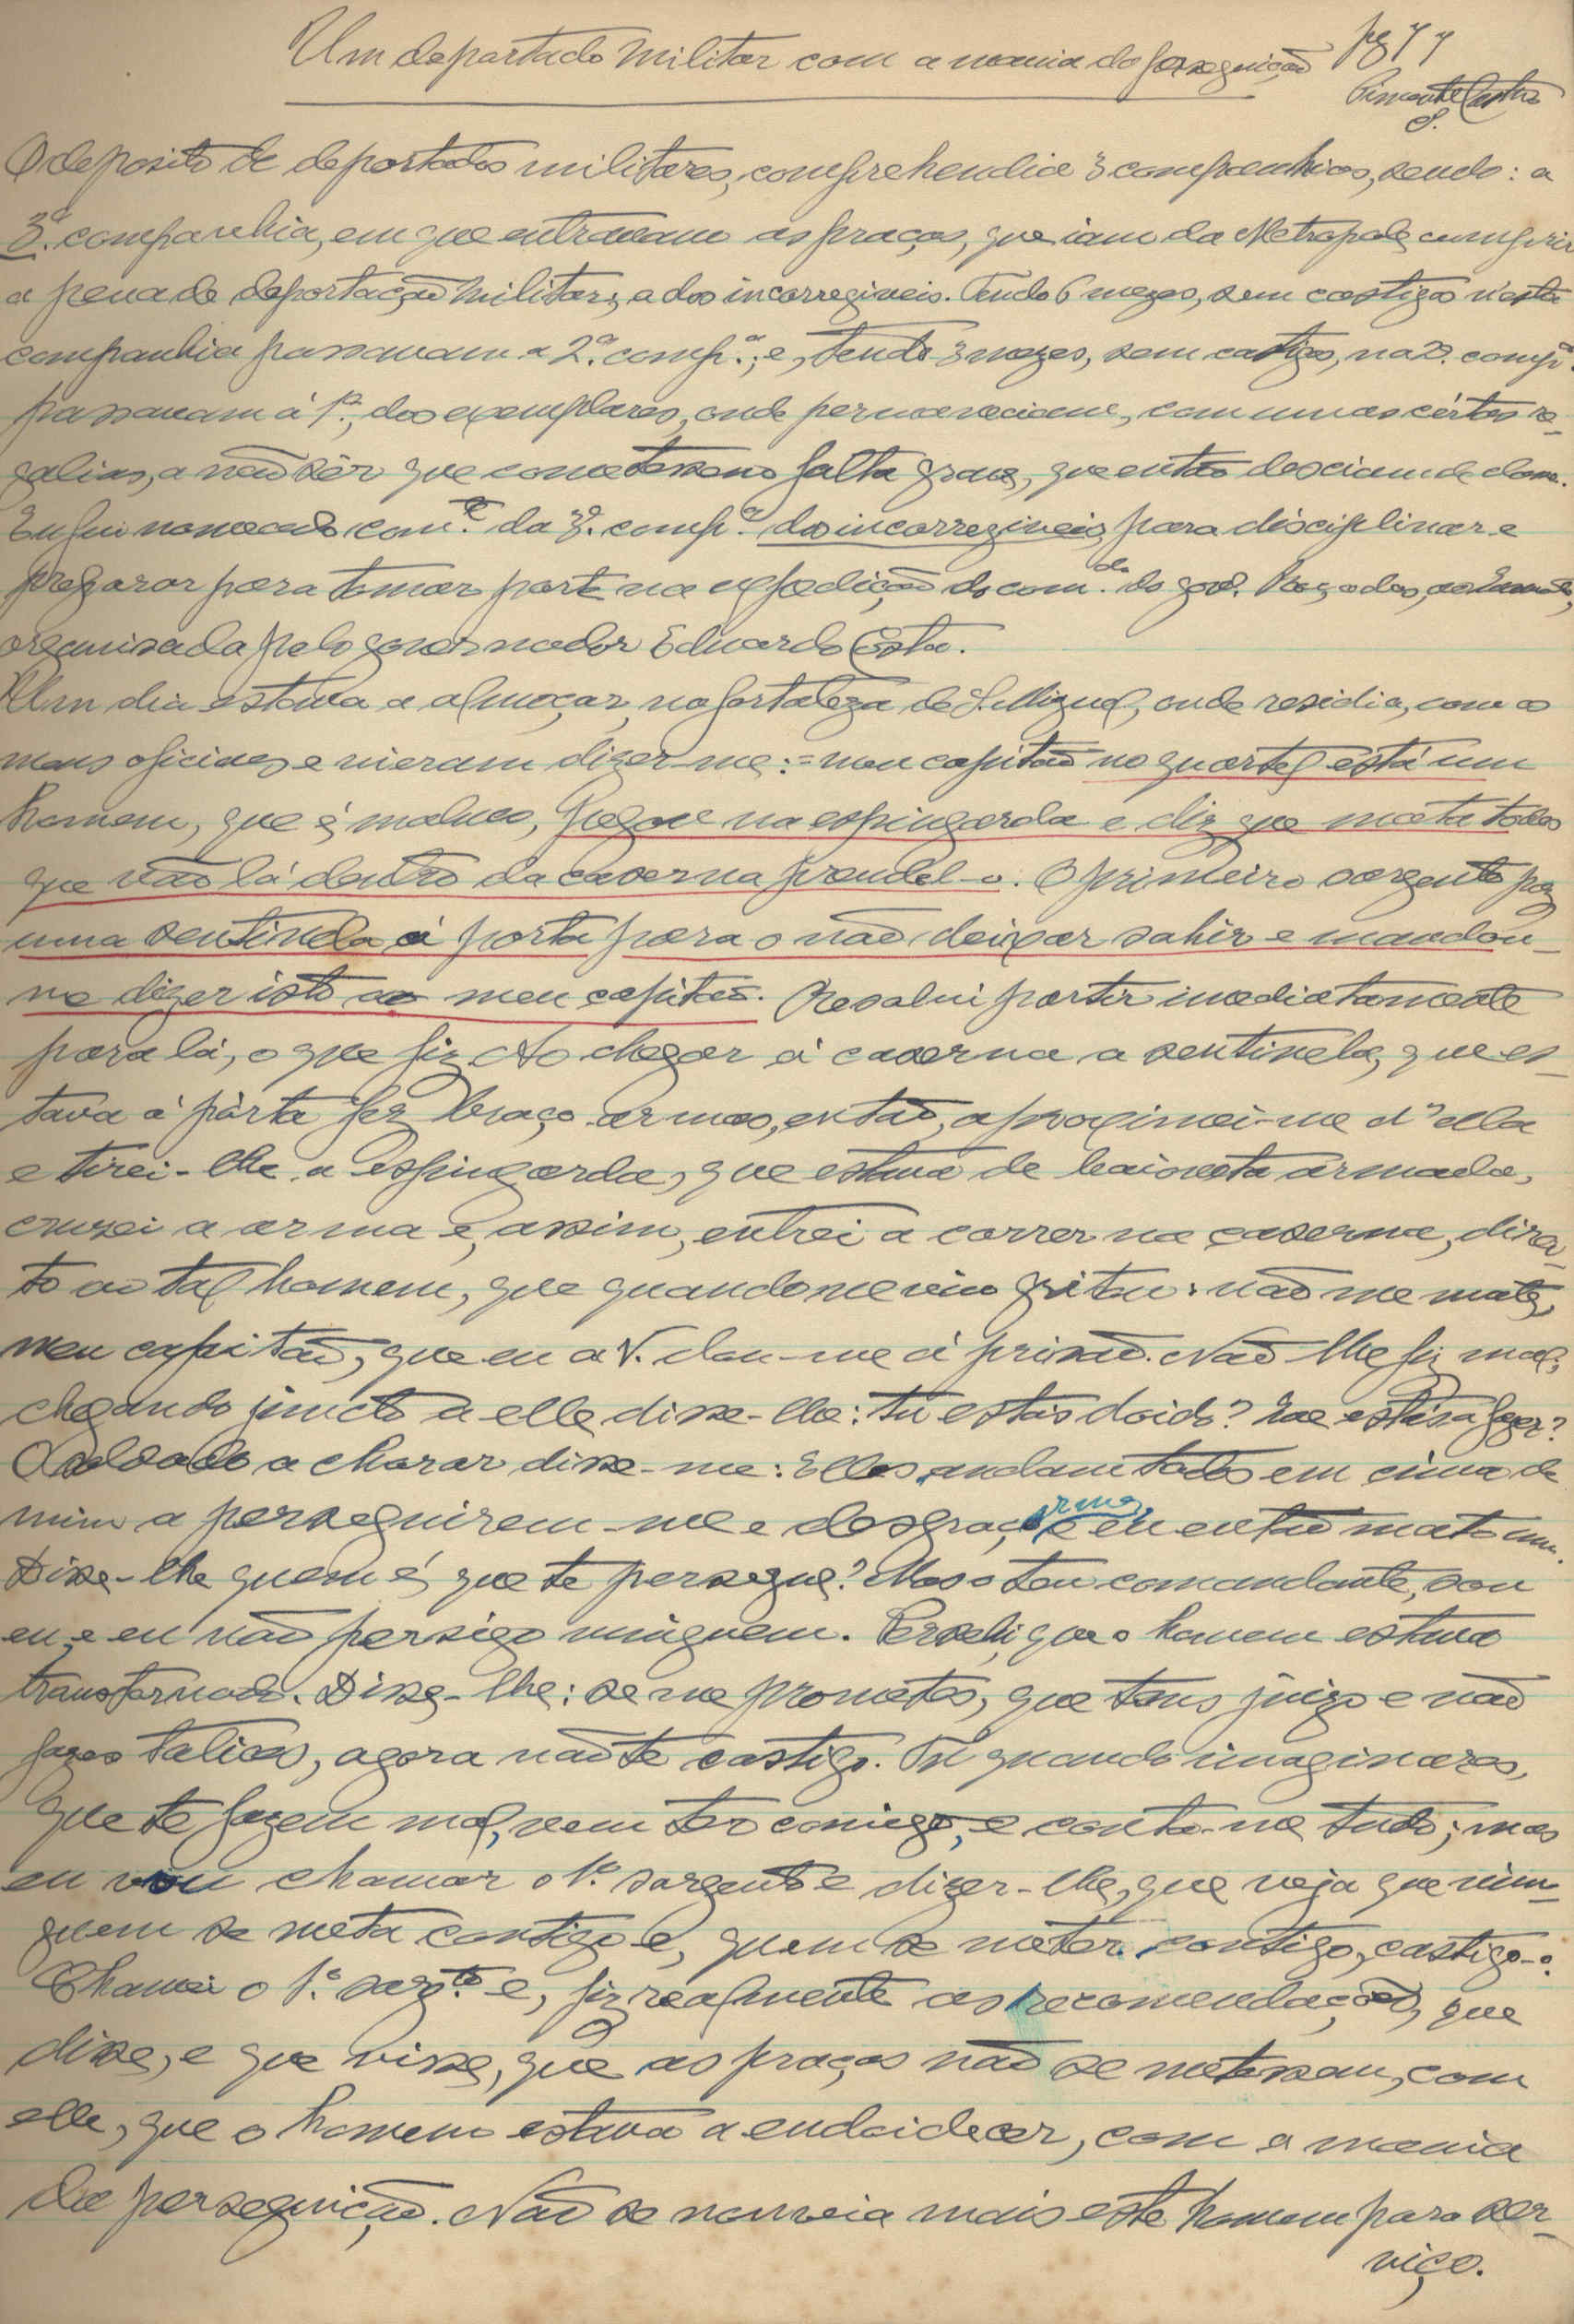 Um deportado militar com a mania da perseguição pg 77
Pimenta Castro
S.
O deposito de deportados militares, comprehendia 3 companhias, sendo: a
3ª. companhia, em que entravam as praças, que iam da Metropole cumprir
a pena de deportação militar, a dos incorregiveis. Tendo 6 mezes, sem castigo n'esta
companhia passavam a 2ª. compª.; e, tendo 3 mezes, sem castigo, na 2ª. compª.
passavam á 1ª., dos exemplares, onde permaneciam, com umas certas re-
galias, a não sêr que cometessem falta grave, que então desciam de classe.
Eu fui nomeado comte. da 3ª. compª. dos incorregiveis, para disciplinar e
preparar para tomar parte na expedição do comdo. do govr. Roçadas, ao
organisada pelo governador Eduardo Costa.
Um dia estava a almoçar, na fortaleza de S. Miguel, onde residia, com os
mais oficiaes e vieram dizer-me: = meu capitão no quartel está um
homem, que é maluco, pegou na espingarda e diz que mata todos
que vão lá dentro da caserna prendel-o. O primeiro sargento poz
uma sentinela á porta para o não deixar sahir e mandou-
me dizer isto ao meu capitão. Resolvi partir imediatamente
para lá, o que fiz. Ao chegar á caserna a sentinela, que es-
tava á pórta fez braço armas, então, aproximei-me d'ella
e tirei-lhe a espingarda, que estava de baioneta armada,
cruzei a arma e, assim, entrei a correr na caserna, direi-
to ao tal homem, que quando me viu gritou: não me mate,
meu capitão, que eu a V. dou-me á prisão. Não lhe fiz mal;
chegando juncto a elle disse-lhe: tu estás doido? Que estás a fazer?
O soldado a chorar disse-me: Elles andam todos em cima de
mim a perseguirem-me e desgraçarme e eu então mato um.
Disse-lhe quem é que te persegue? Mas o teu comandante, sou
eu, e eu não persigo ninguem. Percebi, que o homem estava
transtornado. Disse-lhe: se me prometes, que tens juizo e não
fazes tolices, agora não te castigo. Tu quando imaginares,
que te fazem mal, vem ter comigo, e conta-me tudo; mas
eu vou chamar o 1º. sargento e dizer-lhe, que veja que nin-
guem se meta contigo e, quem se meter contigo, castigo-o.
Chamei o 1º. sargto. e, fiz realmente as recomendações, que
disse, e que visse, que as praças não se metessem, com
elle, que o homem estava a endoidecer, com a mania
da perseguição. Não se nomeia mais este homem para ser-
viço.